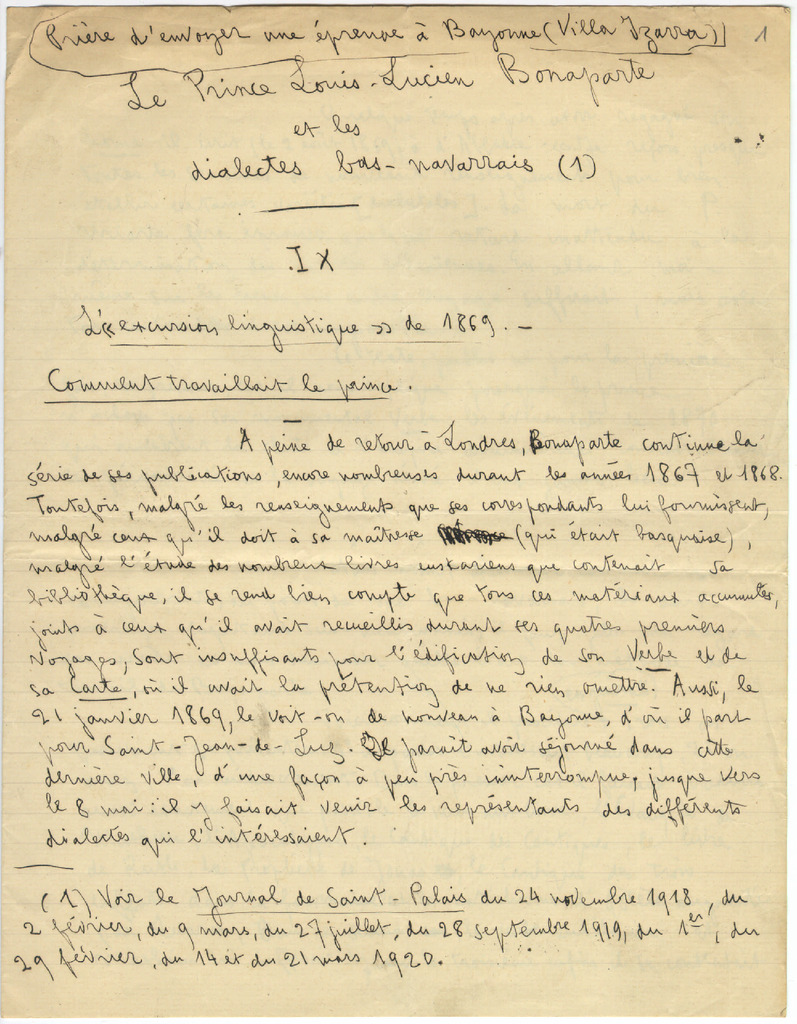 (Prière d'envoyer une épreuve à Bayonne (Villa Izarra)) 1
Le Prince Louis-Lucien Bonaparte
et les
dialectes bas-navarrais (1)
IX
L'« excursion linguistique » de 1869. —
Comment travaillait le prince.
A peine de retour à Londres, Bonaparte continue la
série de ses publications, encore nombreuses durant les années 1867 et 1868.
Toutefois, malgré les renseignements que ses correspondants lui fournissent,
malgré ceux qu'il doit à sa maîtresse (qui était basquaise),
malgré l'étude des nombreux livres euskariens que contenait sa
bibliothèque, il se rend bien compte que tous ces matériaux accumulés,
joints à ceux qu'il avait recueillis durant ses quatres premiers
voyages, sont insuffisants pour l'édification de son Verbe et de
sa Carte, où il avait la prétention de ne rien omettre. Aussi, le
21 janvier 1869, le voit-on de nouveau à Bayonne, d'où il part
pour Saint-Jean-de-Luz. Il paraît avoir séjourné dans cette
dernière ville, d'une façon à peu près ininterrompue, jusque vers
le 8 mai : il y faisait venir les représentants des différents
dialectes qui l'intéressaient.
(1) Voir le Journal de Saint-Palais du 24 novembre 1918, du
2 février, du 9 mars, du 27 juillet, du 28 septembre 1919, du 1er, du
29 février, du 14 et du 21 mars 1920.